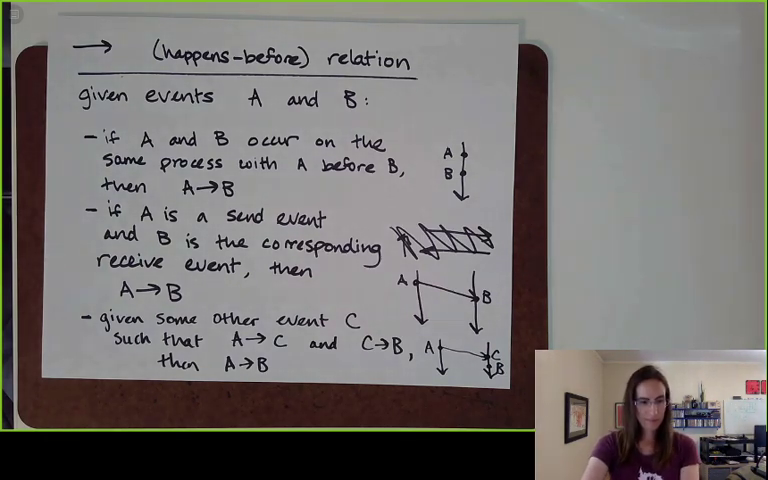 → (happens-before) relation
given events A and B:
- if A and B occur on the
same process with A before B,
then A→B
A
B
- if A is a send event
and B is the corresponding
receive event, then
A→B
A
B
- given some other event C
such that A→C and C→B,
then A→B
A
C
B